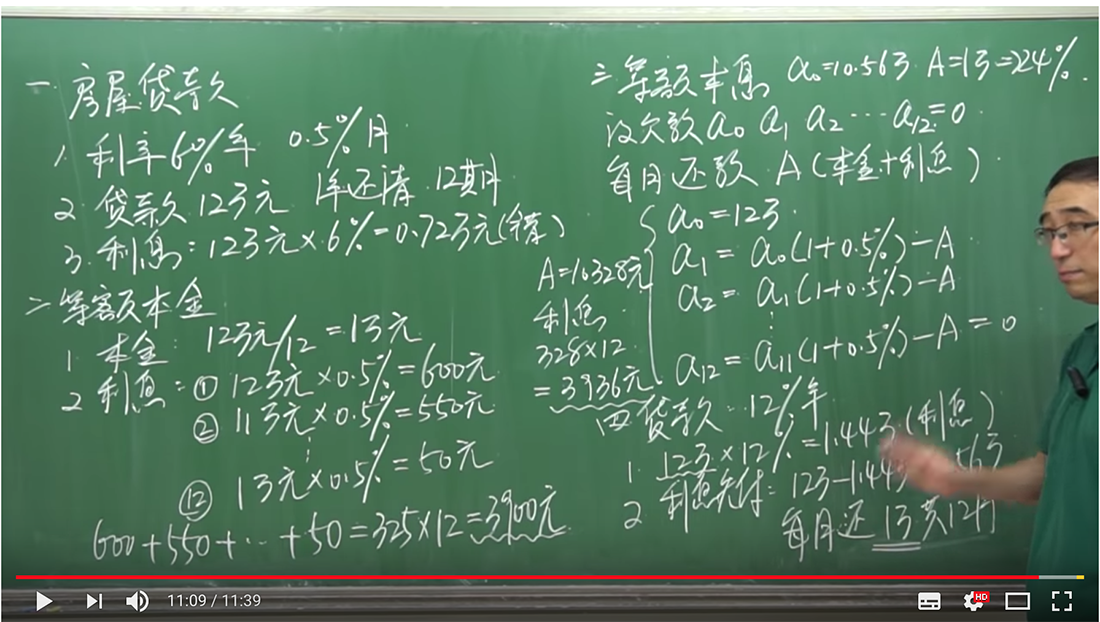 一 房屋贷款
1. 利率6%/年 0.5%/月
2. 贷款 12万元 1年还清 12期
3. 利息: 12万元×6%=0.72万元(错)
二 等额本金
1. 本金: 12万元/12=1万元
2 利息: ① 12万元×0.5%=600元
② 11万元×0.5%=550元
⋮
⑫ 1万元×0.5%=50元
600+550+…+50=325×12=3900元
A=10328元
利息
328×12
=3936元
三 等额本息 a₀=10.56万 A=1万⇒24%.
设欠款 a₀ a₁ a₂ … a₁₂=0
每月还款 A(本金+利息)
a₀=12万
a₁=a₀(1+0.5%)-A
a₂=a₁(1+0.5%)-A
⋮
a₁₂=a₁₁(1+0.5%)-A=0
四 贷款…12%/年
1. 12万×12%=1.44万(利息)
2 利息先付: 12万-1.44万 .56万
每月还 1万 共12月
11:09 / 11:39
HD